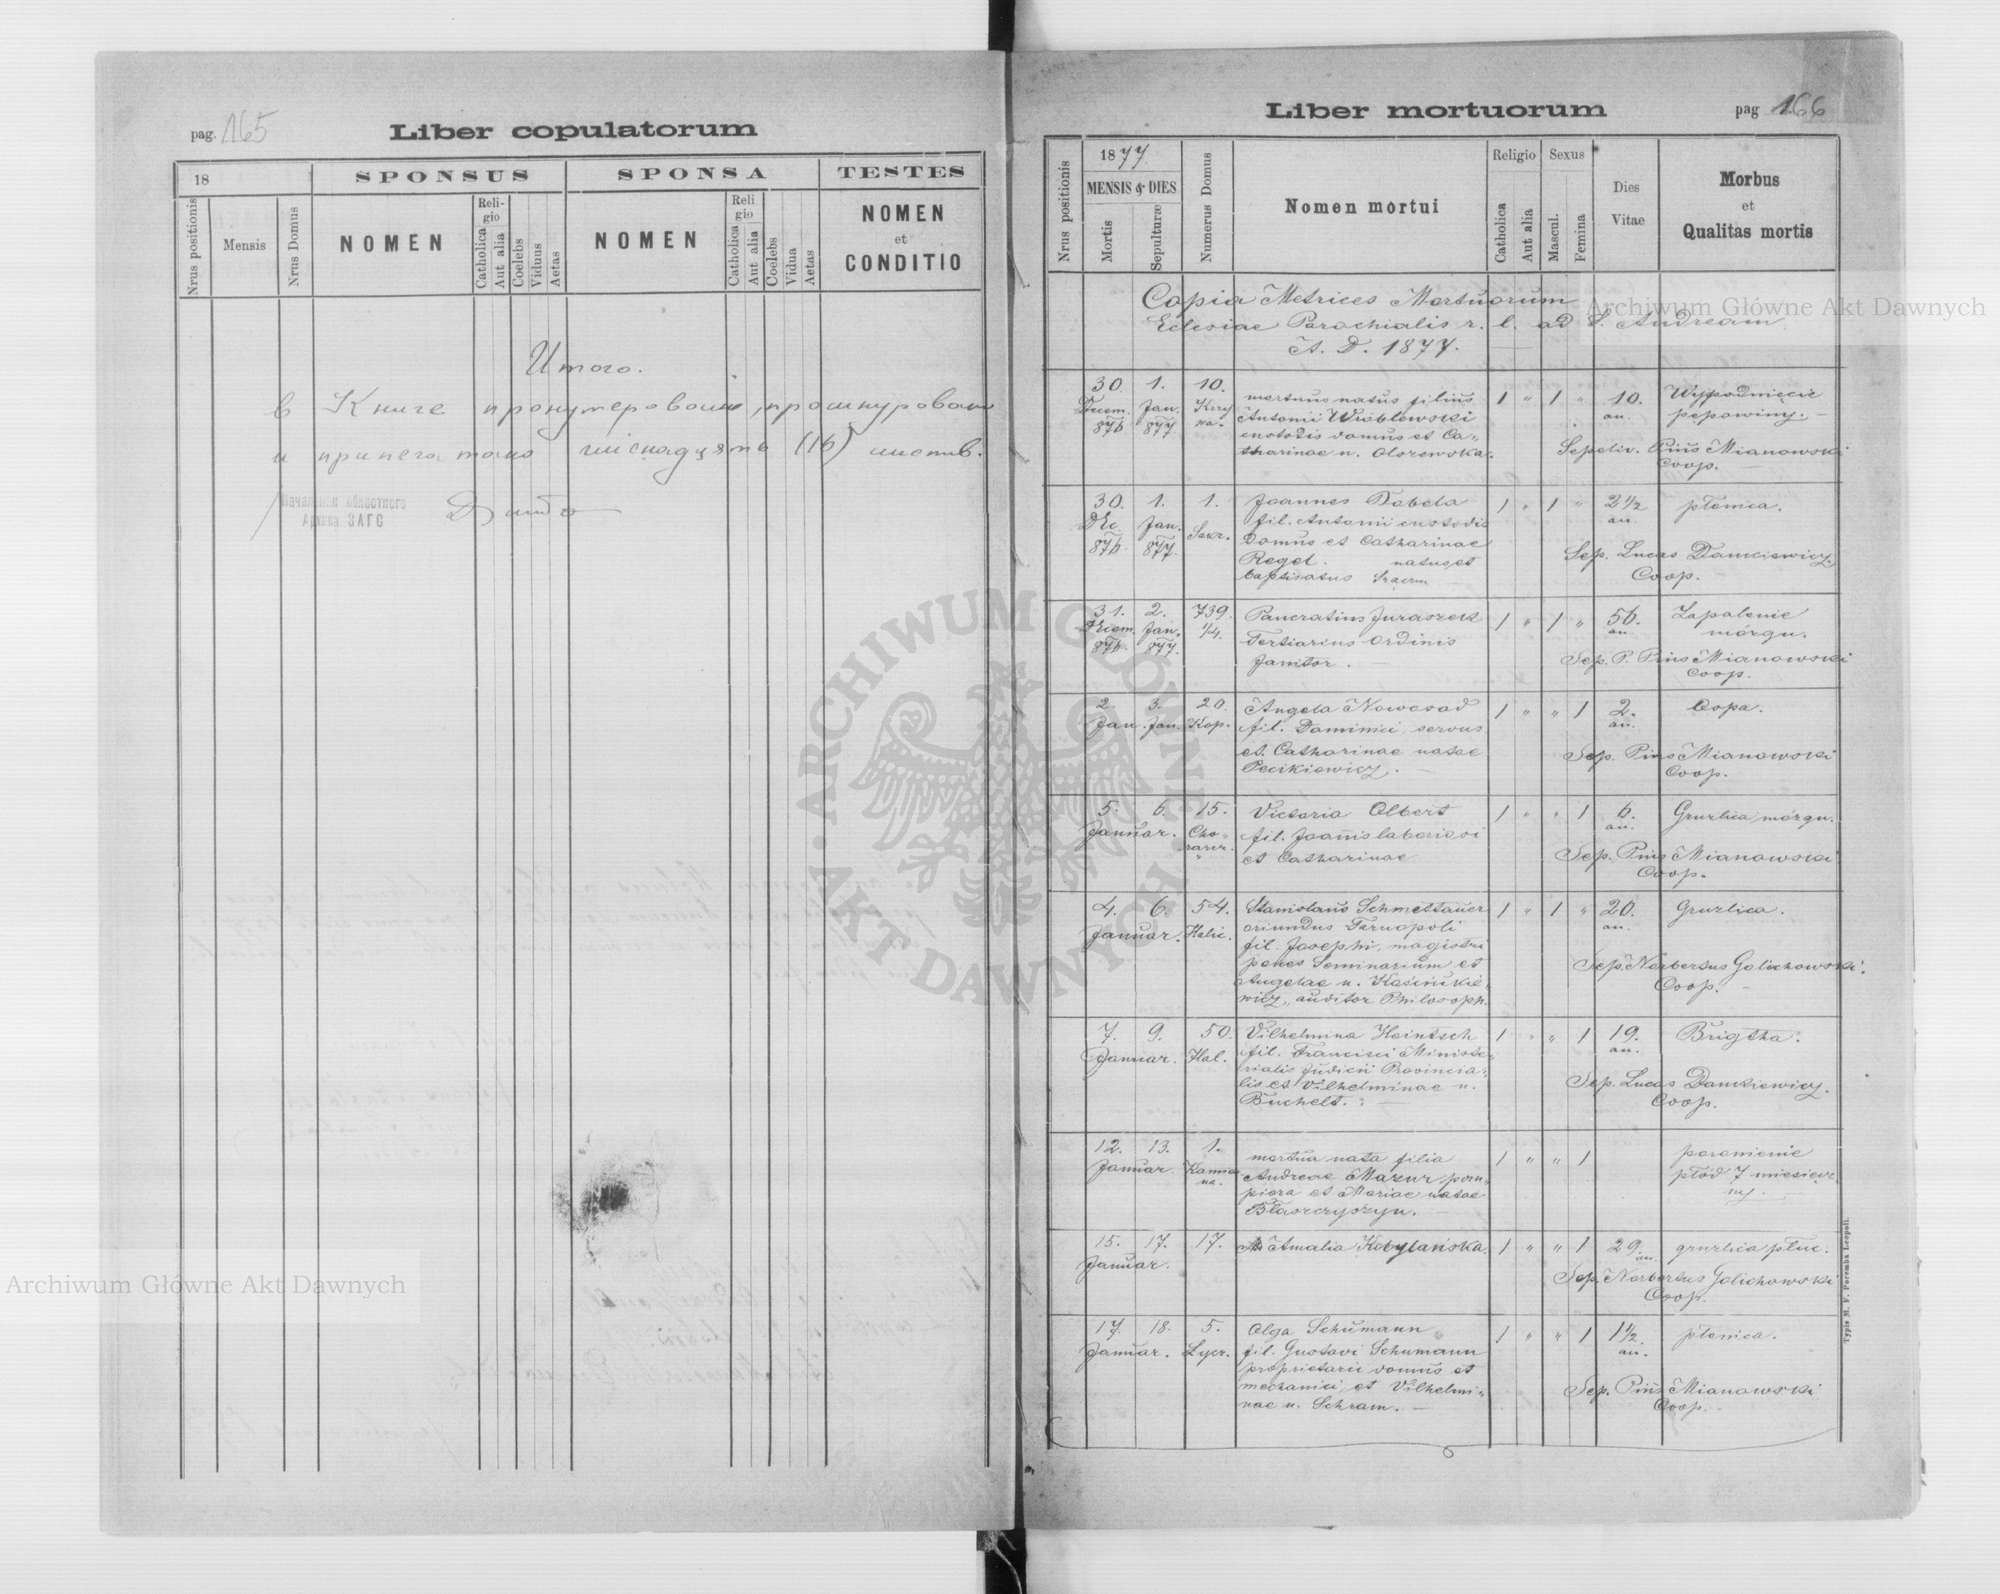 pag. 165
Liber copulatorum
18
SPONSUS
SPONSA
TESTES
Nrus positionis
Mensis
Nrus Domus
NOMEN
Religio
Catholica
Aut alia
Coelebs
Viduus
Aetas
NOMEN
Religio
Catholica
Aut alia
Coelebs
Vidua
Aetas
NOMEN
et
CONDITIO
Итого.
в Книге пронумеровано, прошнуровано
и припечатано (16) листів.
Архива ЗАГС
pag 166
Liber mortuorum
Nrus positionis
1877.
MENSIS & DIES
Mortis
Sepulturæ
Numerus Domus
Nomen mortui
Religio
Catholica
Aut alia
Sexus
Mascul.
Femina
Dies
Vitae
Morbus
et
Qualitas mortis
Copia Metrices Mortuorum
Eclesiae Parochialis r. l. ad S. Andream
A. D. 1877.
30. 1. 10. mortuus natus filius 1 " 1 " 10.
876 Jan. 877 Antonii Wróblewski an. pępowiny.
custodis domus et Ca-
tharinae n. Olszewska. Sepeliv. Pius Mianowski
Coop.
30. 1. 1. Joannes Dobela 1 " 1 " 2 1/2 płonica.
Dec. 876 Jan. 877. fil. Antonii custodis an.
Domus et Catharinae Sep. Lucas Dankiewicz
Regel. natus et Coop.
baptisatus
31. 2. 739. Pancratius Juraszek 1 " 1 " 56. Zapalenie
876. Jan. 877. 1/4. Tertiarius Ordinis an. mózgu.
Janitor. Sep. P. Pius Mianowski
Coop.
2. 3. 20. Angela Nowosad 1 " " 1 2. Ospa.
Jan. Jan. Kop. fil. Dominici, servus an.
et Catharinae natae Sep. Pius Mianowski
Pecikiewicz. Coop.
5. 6. 15. Victoria Olbert 1 " " 1 6. Gruzlica mózgu.
Januar. fil. Joannis laboriosi an.
et Catharinae Sep. Pius Mianowski
Coop.
4. 6. 54. Stanislaus Schmettauer 1 " 1 " 20. Gruzlica.
Januar. Halic. oriundus Tarnopoli an.
fil. Josephi, magistri
penes Seminarium et Sep. Norbertus Golichowski.
Angelae n. Kasinkie- Coop.
wicz, auditor Philosoph.
7. 9. 50 Vilhelmina Heintsch 1 " " 1 19.
Januar. Hal. fil. Francisci Ministe- an.
rialis Judicii Provincia-
lis et Vilhelminae n. Sep. Lucas Dankiewicz.
Buchelt. Coop.
12. 13. 1. mortua nata filia 1 " " 1 poronienie
Januar. Andreae Mazur pom- płód 7 miesięcz
piera et Mariae natae ny.
Błaszczyszyn.
15. 17. 17. Amalia Kobylańska. 1 " " 1 29 an. gruzlica płuc.
Januar. Sep. Norbertus Golichowski
Coop.
17. 18. 5. Olga Schumann 1 " " 1 1 1/2. płonica.
Januar. fil. Gustavi Schumann an.
proprietarii domus et
mechanici et Vilhelmi- Sep. Pius Mianowski
nae n. Schram. Coop.
Typis M. F. Poremba Leopoli.
Archiwum Główne Akt Dawnych
ARCHIWUM GŁÓWNE AKT DAWNYCH
Archiwum Główne Akt Dawnych